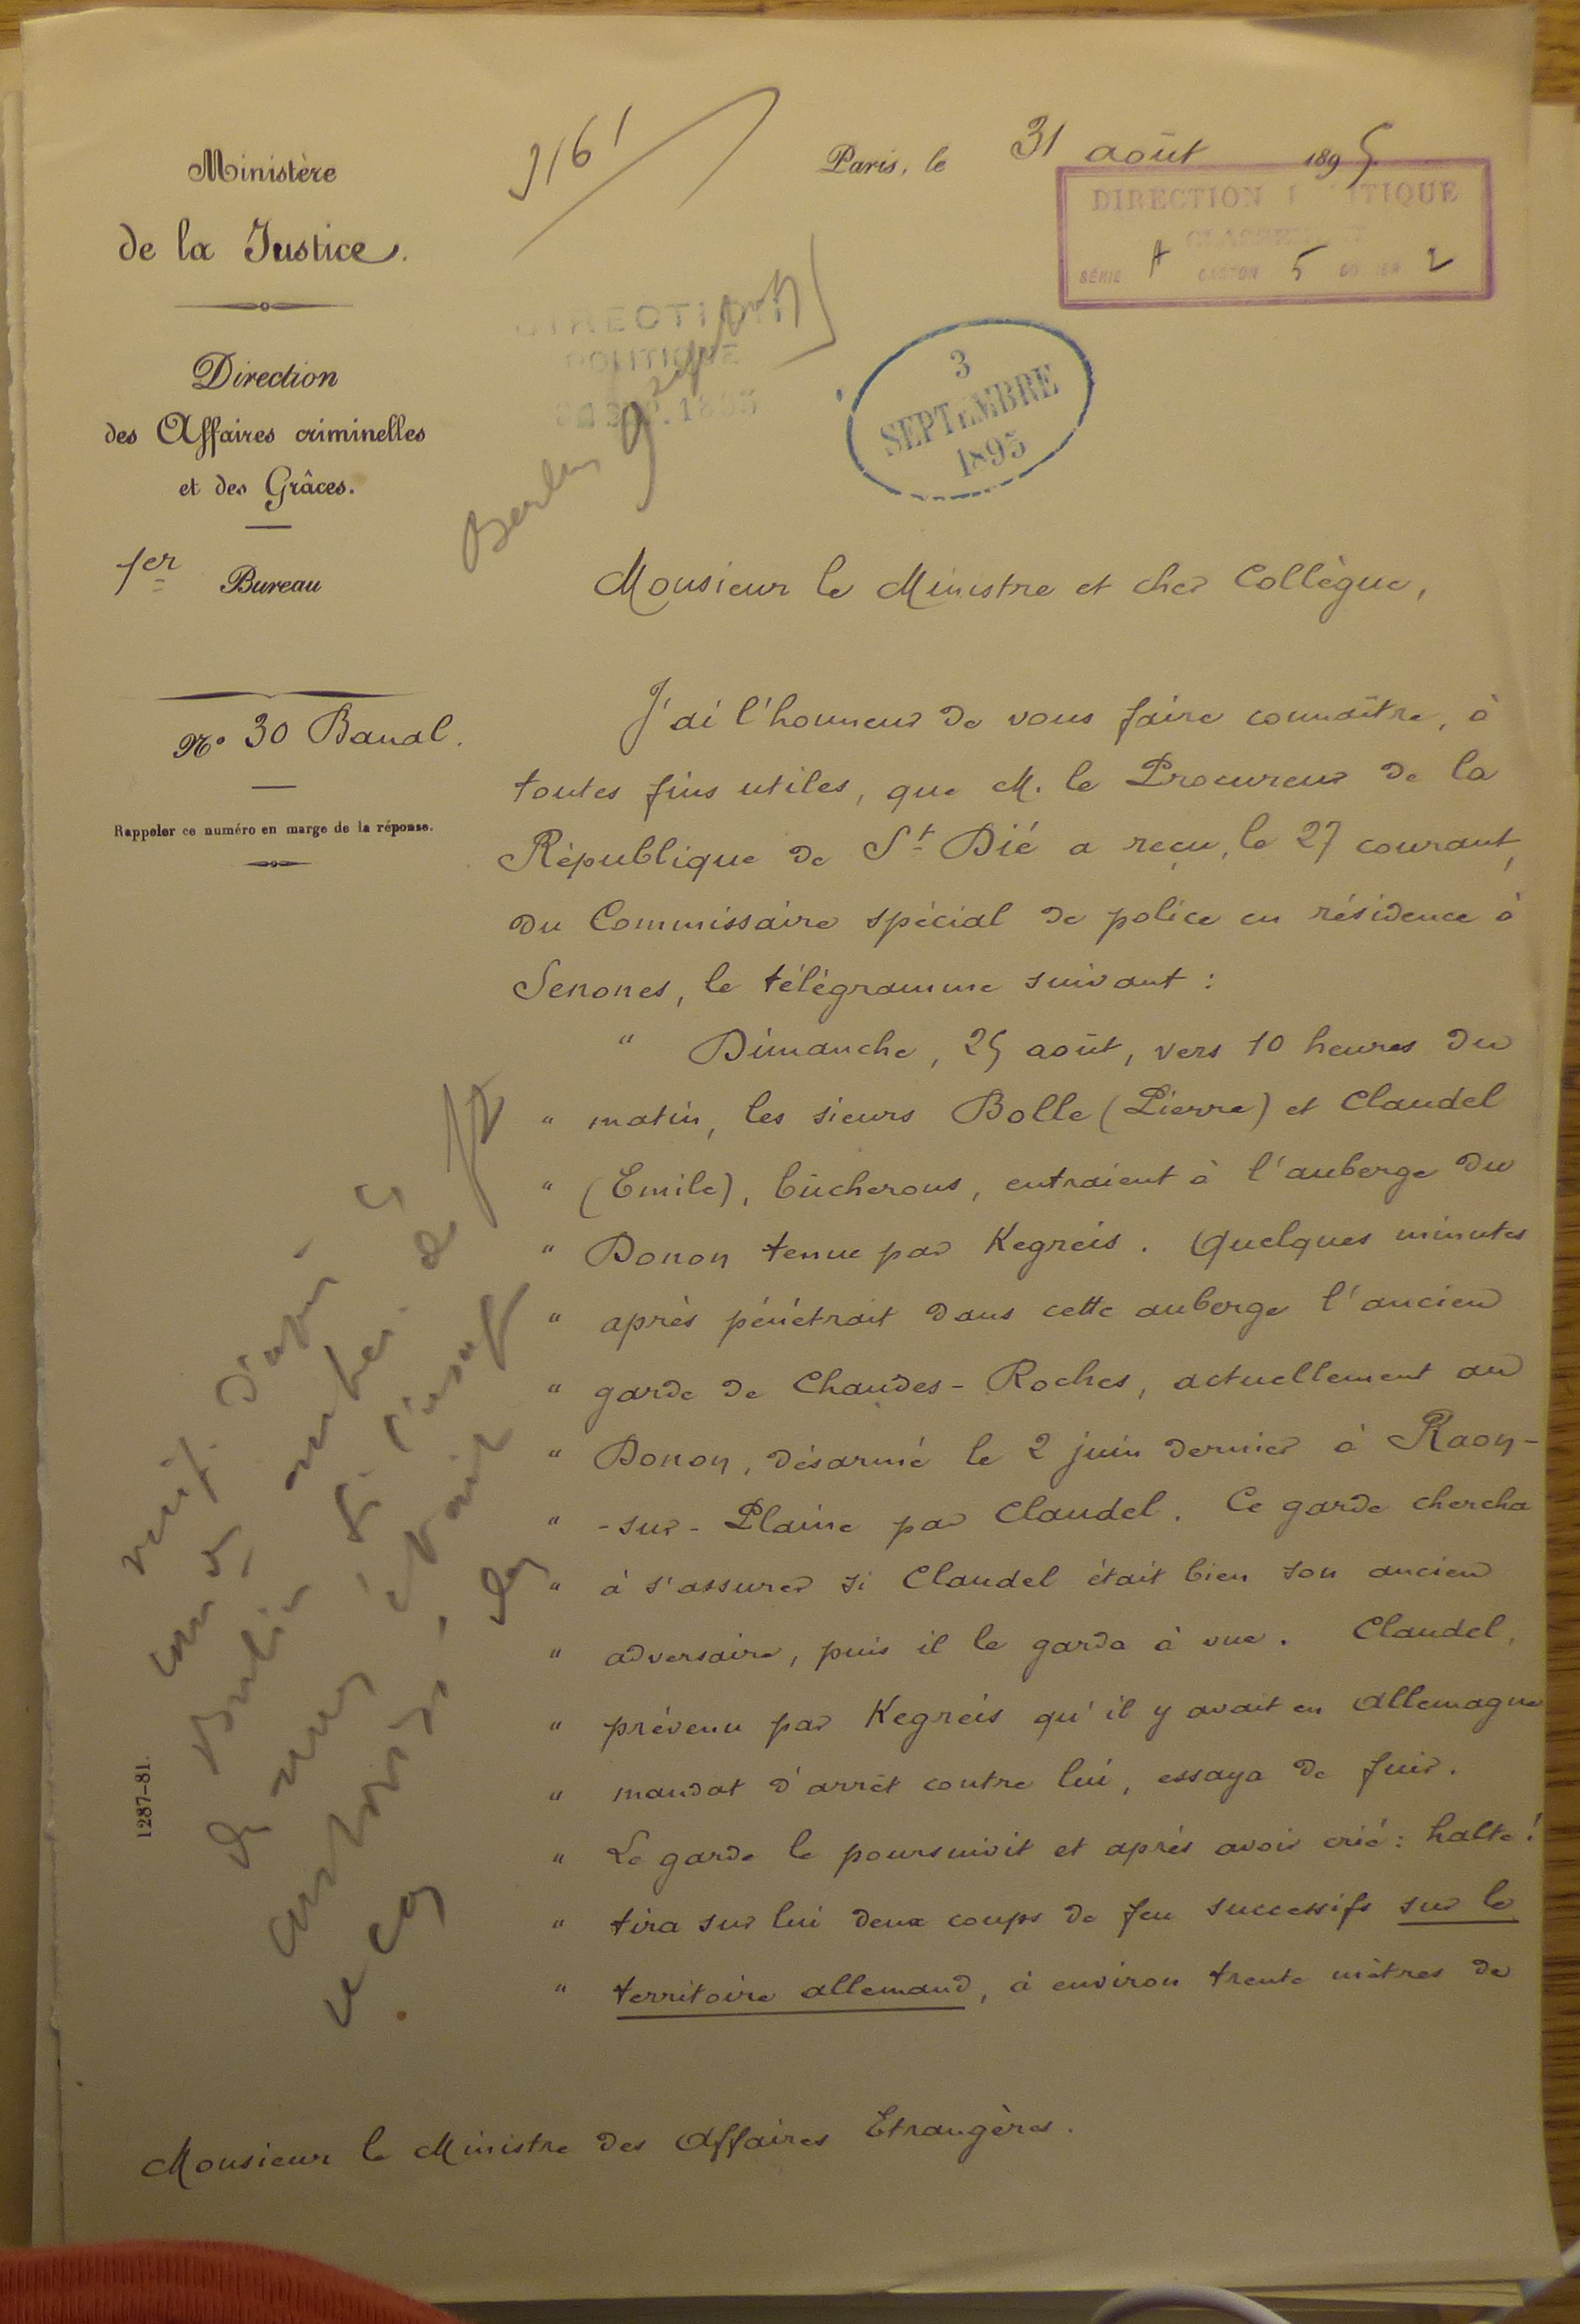 Ministère
de la Justice.
Direction
des Affaires criminelles
et des Grâces.
1er Bureau
No 30 Banal.
Rappeler ce numéro en marge de la réponse.
Paris, le 31 août 1895
DIRECTION
SÉRIE A CARTON 5 DOSSIER 2
DIRECTION
POLITIQUE
SEP. 1895
3
SEPTEMBRE
1895
Berlin 9
Monsieur le Ministre et cher Collègue,
J'ai l'honneur de vous faire connaître, à
toutes fins utiles, que M. le Procureur de la
République de St Dié a reçu, le 27 courant,
du Commissaire spécial de police en résidence à
Senones, le télégramme suivant :
" Dimanche, 25 août, vers 10 heures du
" matin, les sieurs Bolle (Pierre) et Claudel
" (Emile), bûcherons, entraient à l'auberge du
" Donon tenue par Kegreis. Quelques minutes
" après pénétrait dans cette auberge l'ancien
" garde de Chaudes-Roches, actuellement au
" Donon, désarmé le 2 juin dernier à Raon-
" -sur-Plaine par Claudel. Ce garde chercha
" à s'assurer si Claudel était bien son ancien
" adversaire, puis il le garda à vue. Claudel,
" prévenu par Kegreis qu'il y avait en Allemagne
" mandat d'arrêt contre lui, essaya de fuir.
" Le garde le poursuivit et après avoir crié : halte !
" tira sur lui deux coups de feu successifs sur le
" territoire allemand, à environ trente mètres de
1287-81.
Monsieur le Ministre des Affaires Etrangères.